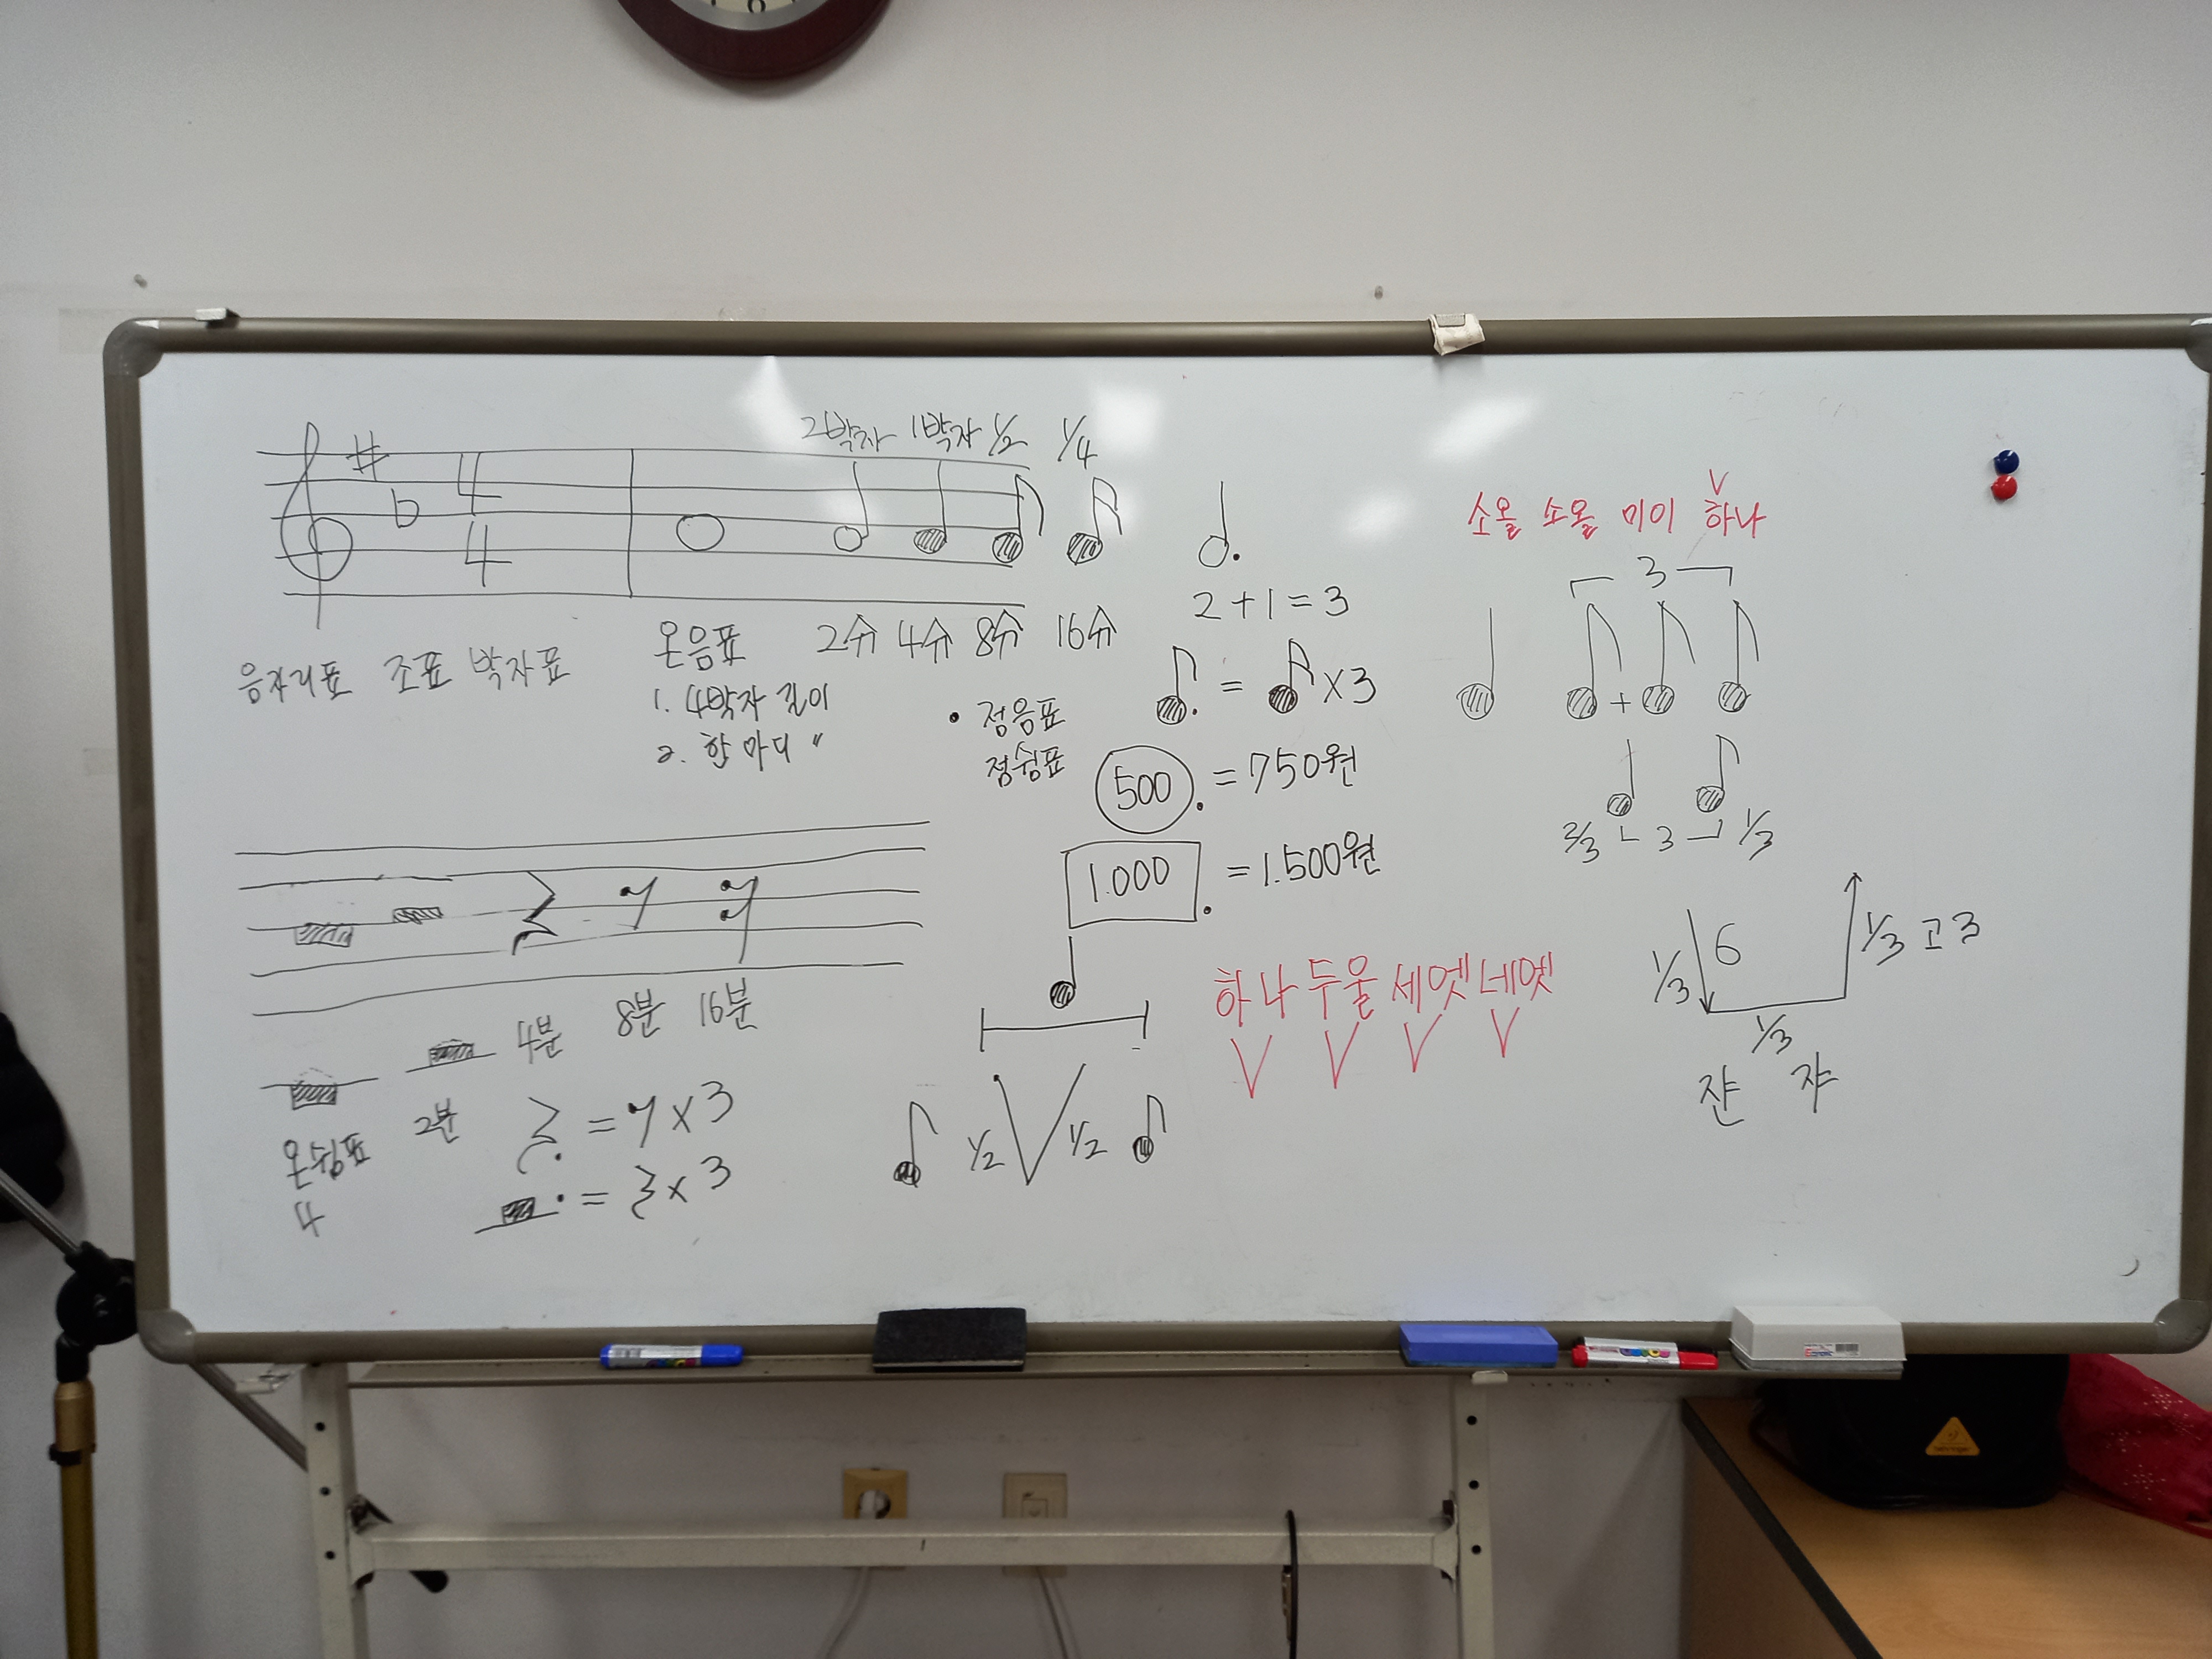 2박자 1박자 1/2 1/4
# b 4
4
음자리표 조표 박자표
온음표 2分 4分 8分 16分
1. 4박자 길이
2. 한 마디 〃
2+1=3
= x3
• 점음표
점쉼표
500. = 750원
1.000. = 1.500원
4분 8분 16분
온쉼표 2분
4
= x 3
= x 3
1/2 1/2
소올 소올 미이 하나
V
3
+
2/3 3 1/3
하나 두울 세엣 네엣
V V V V
1/3 6 1/3 고 3
1/3
쟌 쟈
behringer